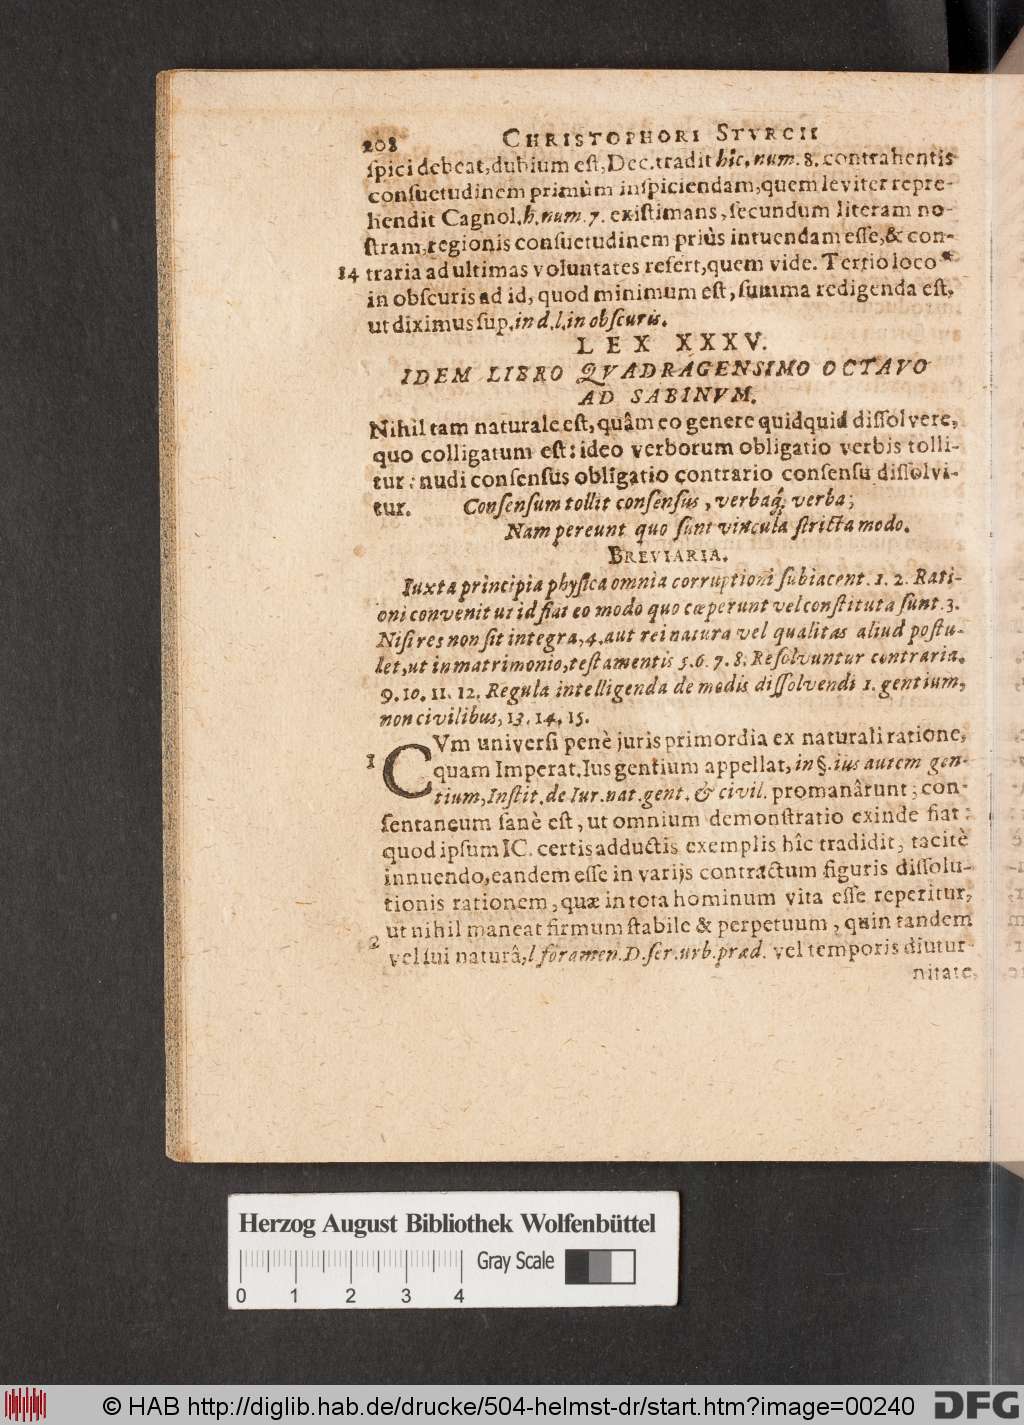 208 CHRISTOPHORI STVRCII
ſpici debeat, dubium eſt, Dec. tradit hîc, num. 8. contrahentis
conſuetudinem primùm inſpiciendam, quem leviter repre-
hendit Cagnol. h. num. 7. exiſtimans, ſecundum literam no-
ſtram, regionis conſuetudinem priùs intuendam eſſe, & con-
14 traria ad ultimas voluntates refert, quem vide. Tertio loco
in obſcuris ad id, quod minimum eſt, ſumma redigenda eſt,
ut diximus ſup. in d. l. in obſcuris.
LEX XXXV.
IDEM LIBRO QVADRAGENSIMO OCTAVO
AD SABINVM.
Nihil tam naturale eſt, quâm eo genere quidquid diſſolvere,
quo colligatum eſt: ideo verborum obligatio verbis tolli-
tur: nudi conſenſus obligatio contrario conſenſu diſſolvi-
tur. Conſenſum tollit conſenſus, verbaq; verba;
Nam pereunt quo ſunt vincula ſtricta modo.
BREVIARIA.
Iuxta principia phyſica omnia corruptioni ſubiacent. 1. 2. Rati-
oni convenit ut id fiat eo modo quo cœperunt vel conſtituta ſunt. 3.
Niſi res non ſit integra, 4. aut rei natura vel qualitas aliud poſtu-
let, ut in matrimonio, teſtamentis 5. 6. 7. 8. Reſolvuntur contraria.
9. 10. 11. 12. Regula intelligenda de modis diſſolvendi 1. gentium,
non civilibus, 13. 14. 15.
1 CVm univerſi penè juris primordia ex naturali ratione,
quam Imperat. Ius gentium appellat, in §. ius autem gen-
tium, Inſtit. de Iur. nat. gent. & civil. promanârunt; con-
ſentaneum ſanè eſt, ut omnium demonſtratio exinde fiat:
quod ipſum IC. certis adductis exemplis hîc tradidit, tacitè
innuendo, eandem eſſe in varijs contractum figuris diſſolu-
tionis rationem, quæ in tota hominum vita eſſe reperitur,
ut nihil maneat firmum ſtabile & perpetuum, quin tandem
2 vel ſui naturâ, l foramen. D. ſer. urb. præd. vel temporis diutur-
nitate,
Herzog August Bibliothek Wolfenbüttel
Gray Scale
0 1 2 3 4
© HAB http://diglib.hab.de/drucke/504-helmst-dr/start.htm?image=00240 DFG